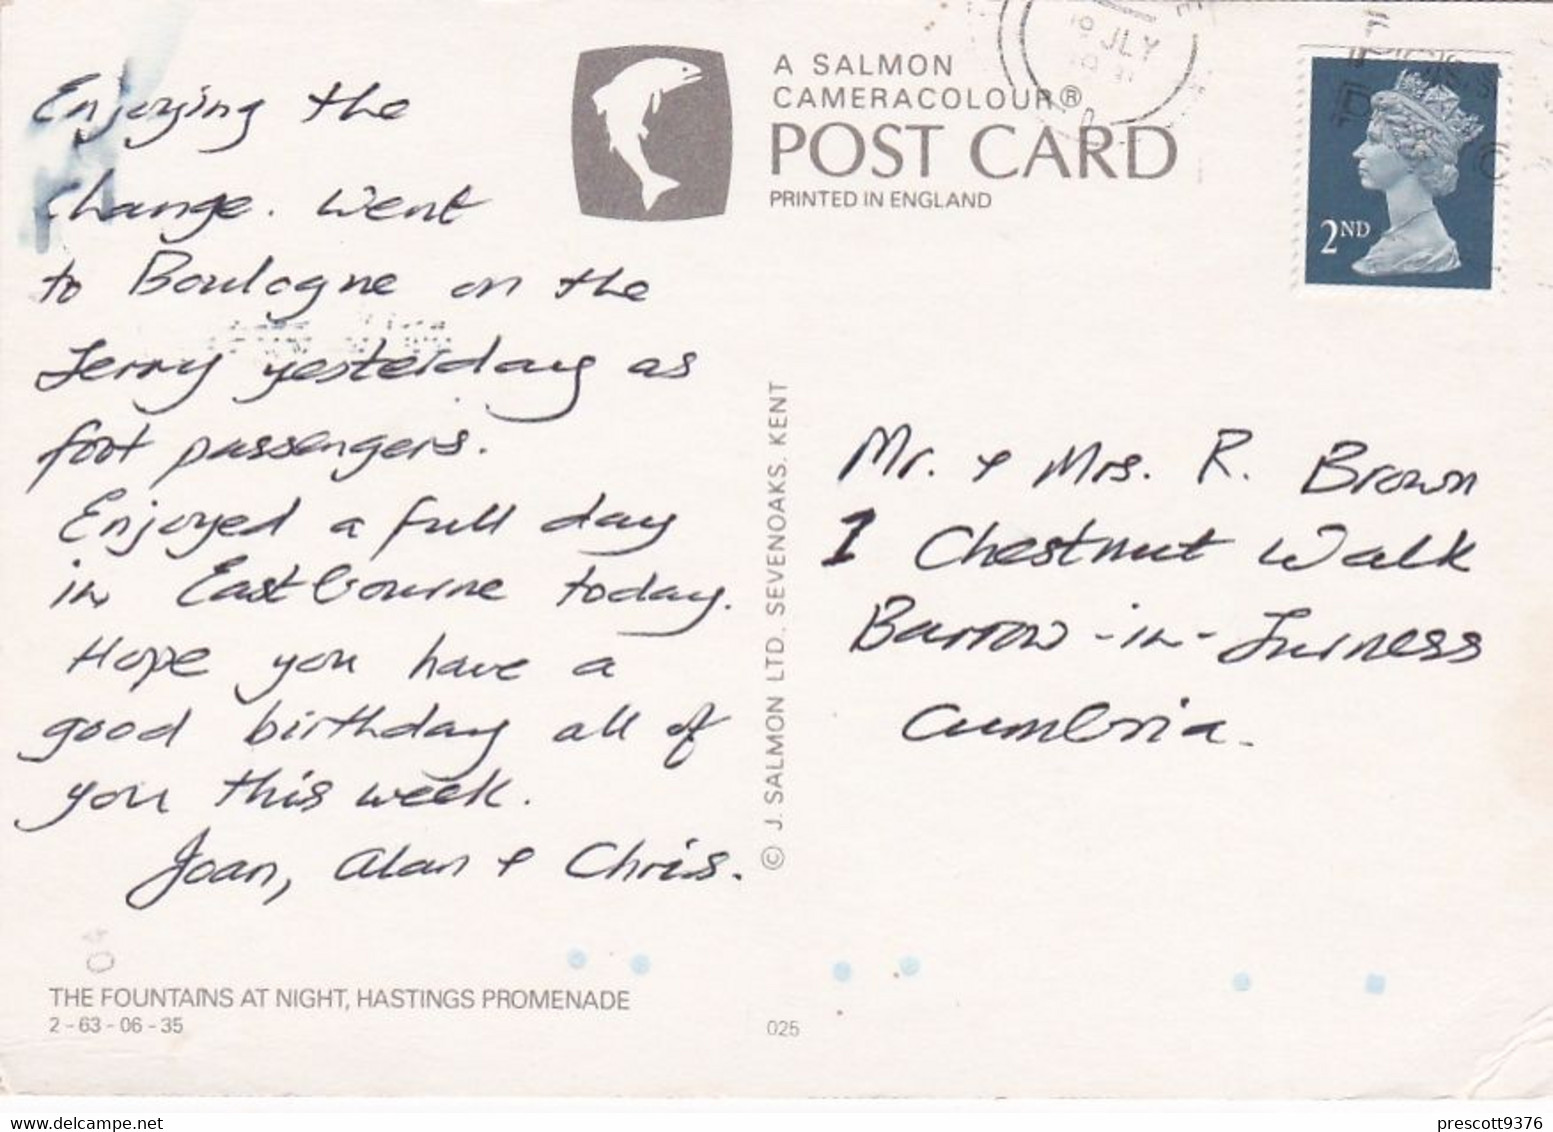 Enjoying the
change. Went
to Boulogne on the
Ferry yesterday as
foot passengers.
Enjoyed a full day
in Eastbourne today.
Hope you have a
good birthday all of
you this week.
Joan, Alan + Chris.
THE FOUNTAINS AT NIGHT, HASTINGS PROMENADE
2-63-06-35
A SALMON
CAMERACOLOUR®
POST CARD
PRINTED IN ENGLAND
© J. SALMON LTD., SEVENOAKS, KENT
025
JLY
2ND
Mr. + Mrs. R. Brown
1 Chestnut Walk
Barrow-in-Furness
Cumbria.
delcampe.net
prescott9376